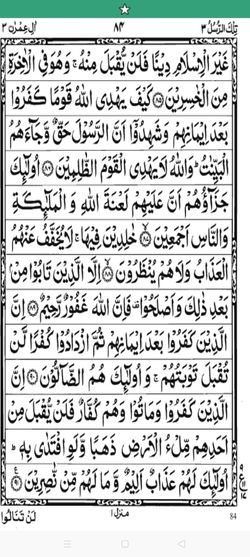 تِلْكَ الرُّسُلُ ٣ ٨٤ اٰلِ عِمْرٰن ٣
غَيْرَ الْاِسْلَامِ دِيْنًا فَلَنْ يُّقْبَلَ مِنْهُ ۚ وَهُوَ فِي الْاٰخِرَةِ
مِنَ الْخٰسِرِيْنَ ﴿٨٥﴾ كَيْفَ يَهْدِى اللّٰهُ قَوْمًا كَفَرُوْا
بَعْدَ اِيْمَانِهِمْ وَشَهِدُوْٓا اَنَّ الرَّسُوْلَ حَقٌّ وَّجَآءَهُمُ
الْبَيِّنٰتُ ؕ وَاللّٰهُ لَا يَهْدِى الْقَوْمَ الظّٰلِمِيْنَ ﴿٨٦﴾ اُولٰٓئِكَ
جَزَآؤُهُمْ اَنَّ عَلَيْهِمْ لَعْنَةَ اللّٰهِ وَ الْمَلٰٓئِكَةِ
وَالنَّاسِ اَجْمَعِيْنَ ﴿٨٧﴾ خٰلِدِيْنَ فِيْهَا ۚ لَا يُخَفَّفُ عَنْهُمُ
الْعَذَابُ وَلَا هُمْ يُنْظَرُوْنَ ﴿٨٨﴾ اِلَّا الَّذِيْنَ تَابُوْا مِنْۢ
بَعْدِ ذٰلِكَ وَاَصْلَحُوْا ۫ فَاِنَّ اللّٰهَ غَفُوْرٌ رَّحِيْمٌ ﴿٨٩﴾ اِنَّ
الَّذِيْنَ كَفَرُوْا بَعْدَ اِيْمَانِهِمْ ثُمَّ ازْدَادُوْا كُفْرًا لَّنْ
تُقْبَلَ تَوْبَتُهُمْ ۚ وَاُولٰٓئِكَ هُمُ الضَّآلُّوْنَ ﴿٩٠﴾ اِنَّ
الَّذِيْنَ كَفَرُوْا وَمَاتُوْا وَهُمْ كُفَّارٌ فَلَنْ يُّقْبَلَ مِنْ
اَحَدِهِمْ مِّلْءُ الْاَرْضِ ذَهَبًا وَّلَوِ افْتَدٰى بِهٖ ؕ
اُولٰٓئِكَ لَهُمْ عَذَابٌ اَلِيْمٌ وَّ مَا لَهُمْ مِّنْ نّٰصِرِيْنَ ﴿٩١﴾
لَنْ تَنَالُوا منزل ١ 84